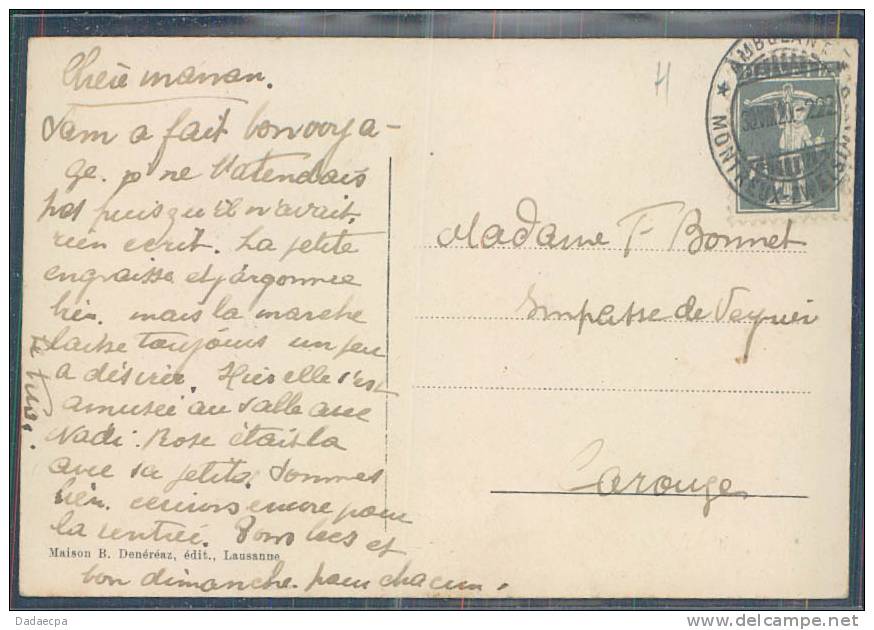 Chère maman.
Sam a fait bon voya-
ge. p ne l'atendais
pas puisqu'il n'avait
rien ecrit. La petite
engraisse et jargonne
bien. mais la marche
laisse toujours un peu
a désirer. Hier elle s'est
amusée au sable avec
Nadi. Rose étais la
avec sa petite. Sommes
bien. ecrirons encore pour
la rentrée. Bons becs et
bon dimanche pour chacun.
Maison B. Denéréaz, édit., Lausanne
H
AMBULANT
MONT
Madame F Bonnet
Impasse de Veyrier
Carouge
Dadaecpa
www.delcampe.net